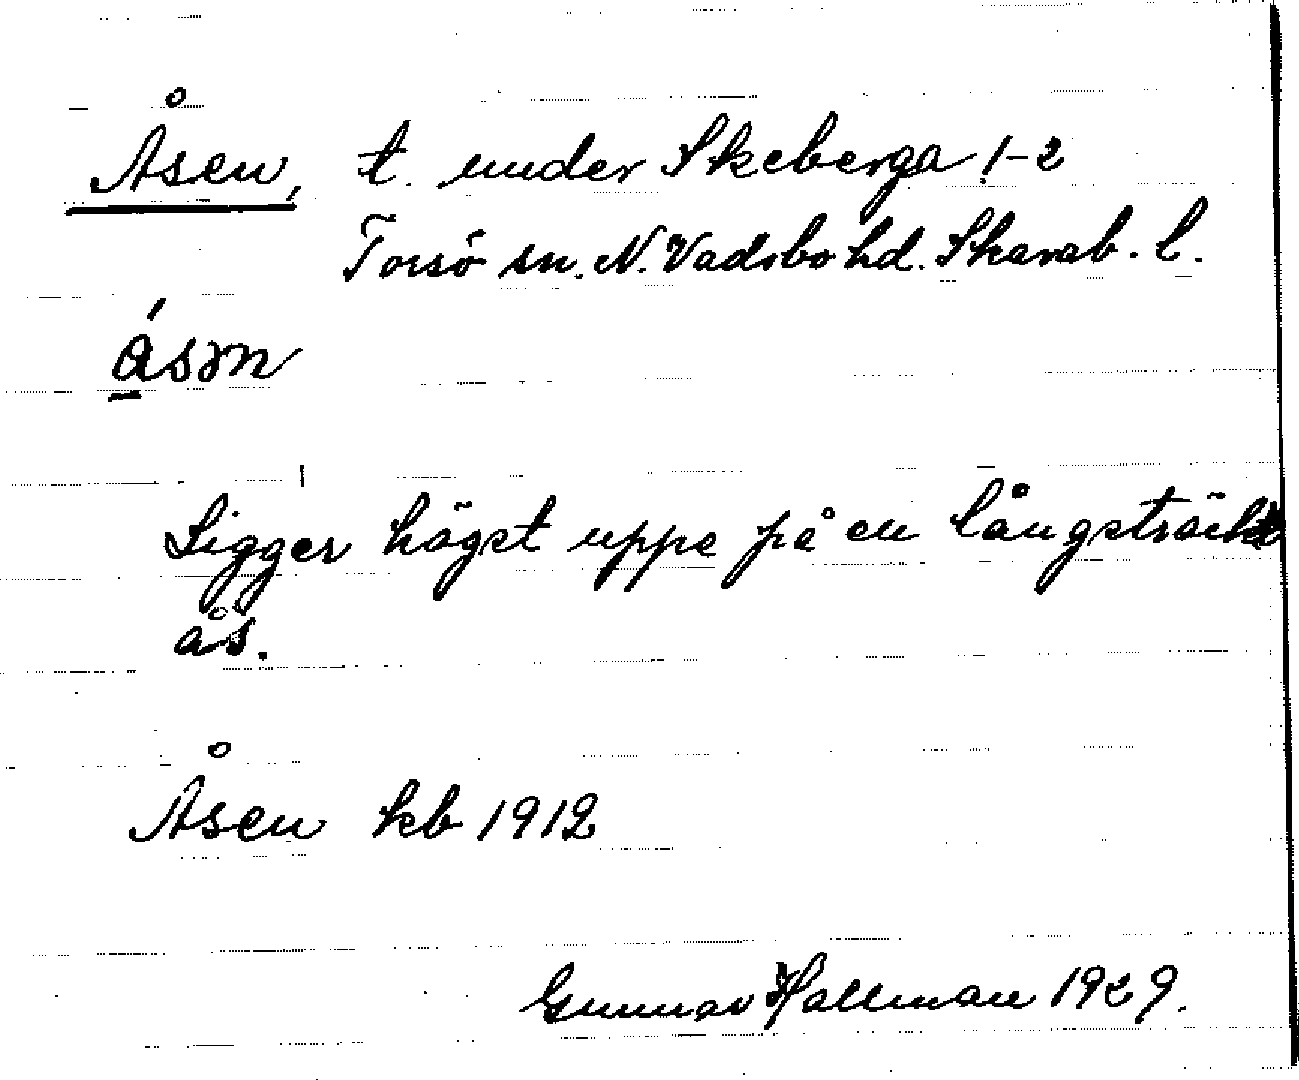 Åsen, t. under Skeberga 1-2
Torsö sn. N. Vadsbo hd. Skarab. l.
á̱sən
Ligger högst uppe på en långsträckt
ås.
Åsen kb 1912
Gunnar Hallman 1929.